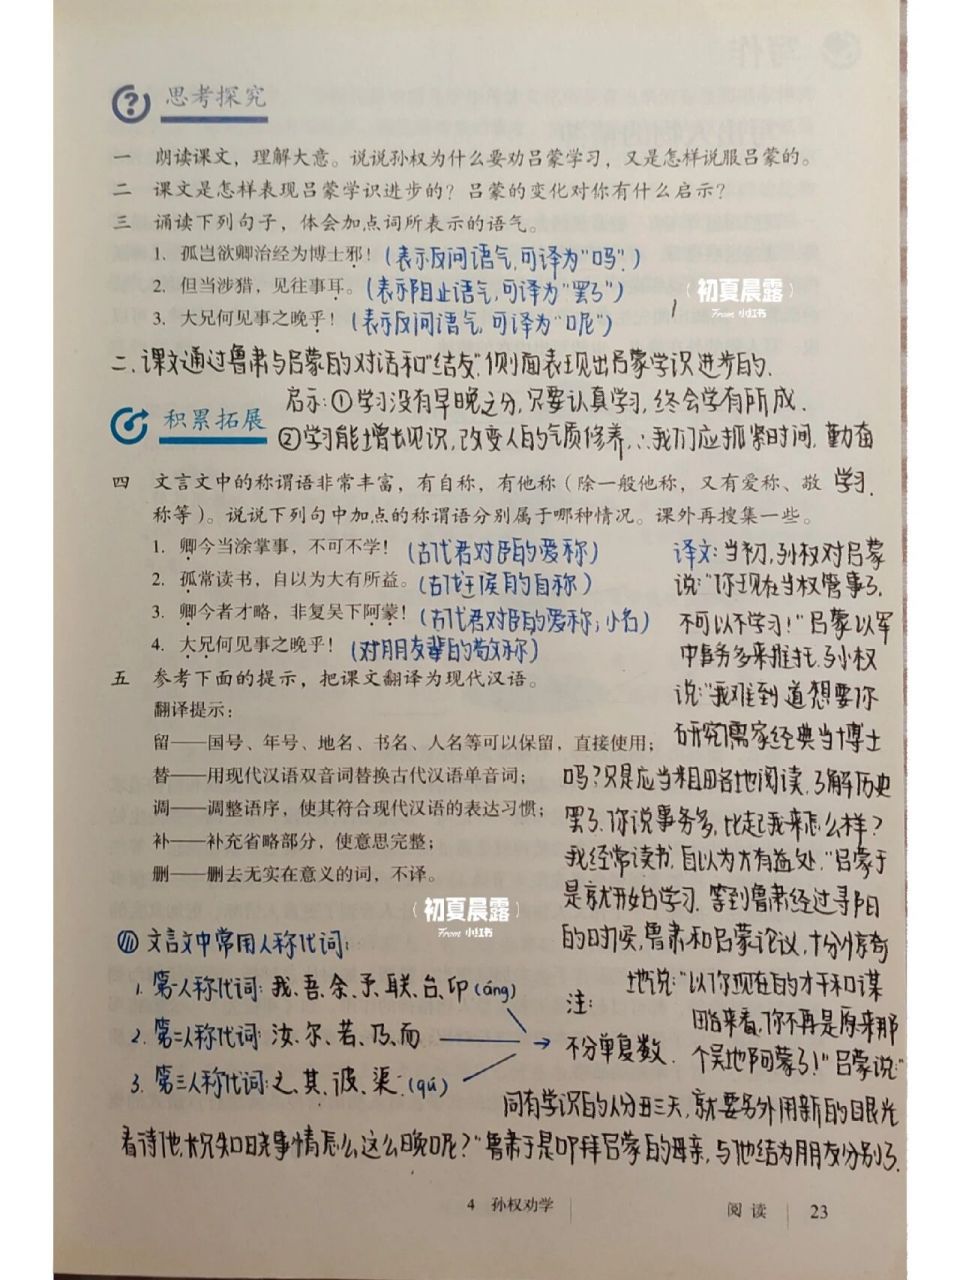 思考探究
一 朗读课文，理解大意。说说孙权为什么要劝吕蒙学习，又是怎样说服吕蒙的。
二 课文是怎样表现吕蒙学识进步的？吕蒙的变化对你有什么启示？
三 诵读下列句子，体会加点词所表示的语气。
1. 孤岂欲卿治经为博士邪！（表示反问语气，可译为"吗"。）
2. 但当涉猎，见往事耳。（表示限止语气，可译为"罢了"）
初夏晨露
From 小红书
3. 大兄何见事之晚乎！（表示反问语气，可译为"呢"）
二、课文通过鲁肃与吕蒙的对话和"结友"侧面表现出吕蒙学识进步的.
启示：①学习没有早晚之分，只要认真学习，终会学有所成.
积累拓展
②学习能增长见识，改变人的气质修养，∴我们应抓紧时间，勤奋
学习.
四 文言文中的称谓语非常丰富，有自称，有他称（除一般他称，又有爱称、敬
称等）。说说下列句中加点的称谓语分别属于哪种情况。课外再搜集一些。
1. 卿今当涂掌事，不可不学！（古代君对臣的爱称）
2. 孤常读书，自以为大有所益。（古代王侯的自称）
3. 卿今者才略，非复吴下阿蒙！（古代君对臣的爱称；小名）
4. 大兄何见事之晚乎！（对朋友辈的敬称）
五 参考下面的提示，把课文翻译为现代汉语。
翻译提示：
留——国号、年号、地名、书名、人名等可以保留，直接使用；
替——用现代汉语双音词替换古代汉语单音词；
调——调整语序，使其符合现代汉语的表达习惯；
补——补充省略部分，使意思完整；
删——删去无实在意义的词，不译。
译文：当初，孙权对吕蒙
说："你现在当权管事了，
不可以不学习！"吕蒙以军
中事务多来推托.孙权
说："我难到道想要你
研究儒家经典当博士
吗？只是应当粗略地阅读，了解历史
罢了.你说事务多，比起我来怎么样？
我经常读书，自以为大有益处."吕蒙于
是就开始学习.等到鲁肃经过寻阳
的时候，鲁肃和吕蒙论议，十分惊奇
地说："以你现在的才干和谋
略来看，你不再是原来那
个吴地阿蒙了！"吕蒙说："
同有学识的人分丑三天，就要另外用新的目眼光
看诗他，大兄知晓事情怎么这么晚呢？"鲁肃于是叩拜吕蒙的母亲，与他结为朋友分别了.
初夏晨露
From 小红书
文言文中常用人称代词：
1. 第一人称代词：我、吾、余、予、联、台、卬（áng）
2. 第二人称代词：汝、尔、若、乃、而
3. 第三人称代词：之、其、彼、渠.（qú）
注：
不分单复数.
4 孙权劝学
阅读 23